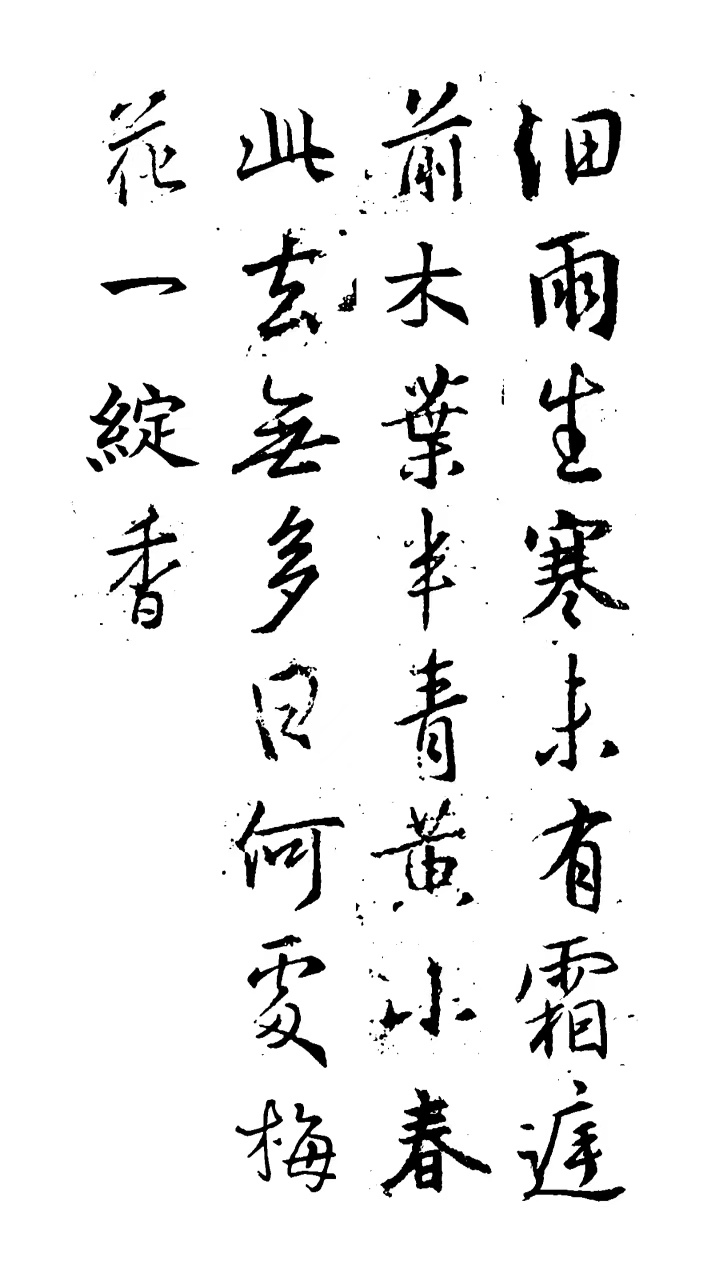 細雨生寒未有霜庭
前木葉半青黃小春
此去無多日何處梅
花一綻香